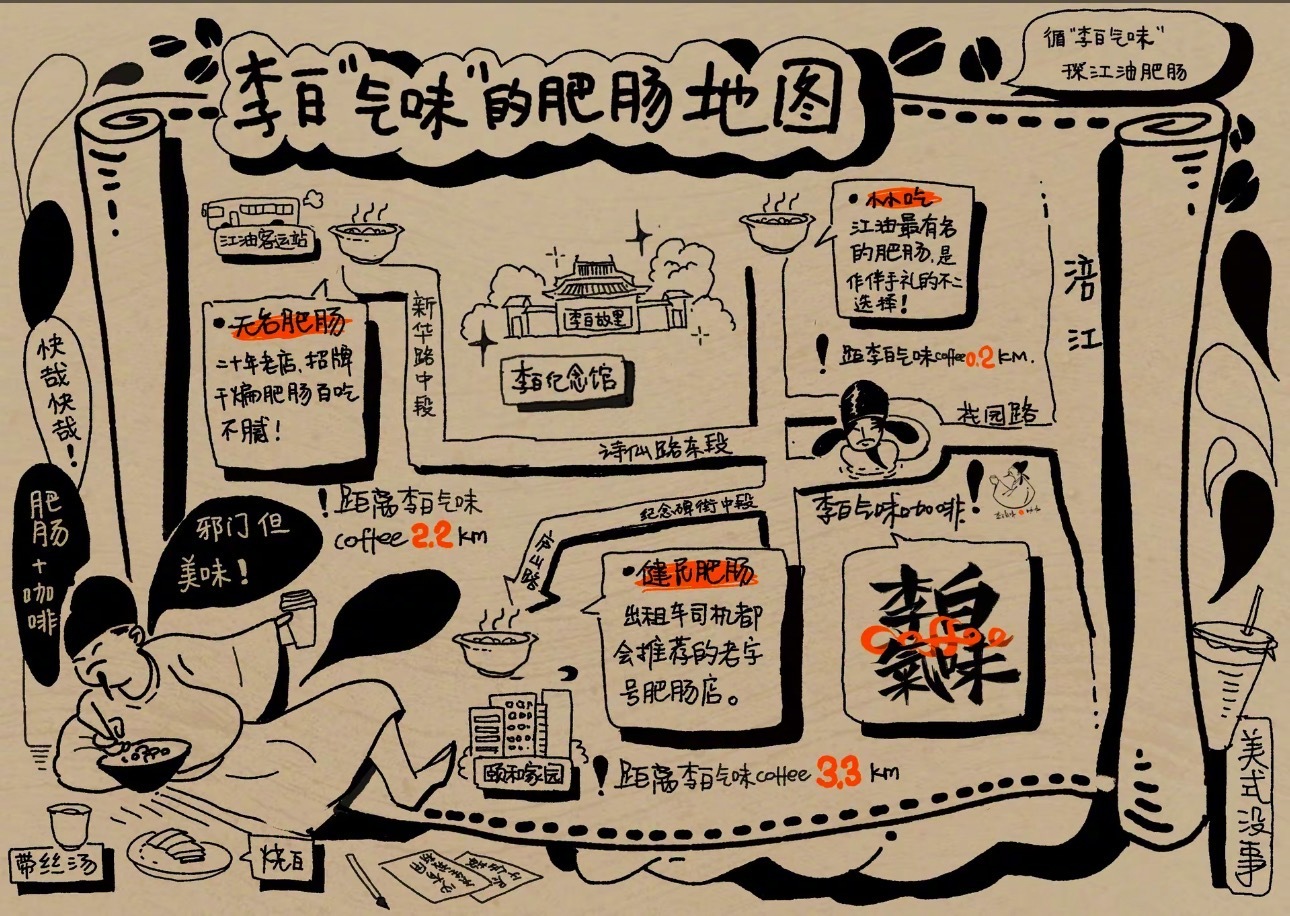 李白"气味"的肥肠地图
循"李白气味"
探江油肥肠
江油客运站
•无名肥肠
二十年老店,招牌
干煸肥肠百吃
不腻!
!距离李白气味
coffee 2.2 km
新华路中段
李白故里
李白纪念馆
诗仙路东段
•林林吃
江油最有名
的肥肠,是
作伴手礼的不二
选择!
!距李白气味coffee0.2KM.
涪江
快哉快哉!
肥肠+咖啡
邪门但
美味!
纪念碑街中段
庐山路
李白气味咖啡!
李白
coffee
氣味
•健民肥肠
出租车司机都
会推荐的老字
号肥肠店。
颐和家园
!距离李白气味coffee 3.3 km
美式没事
带丝汤